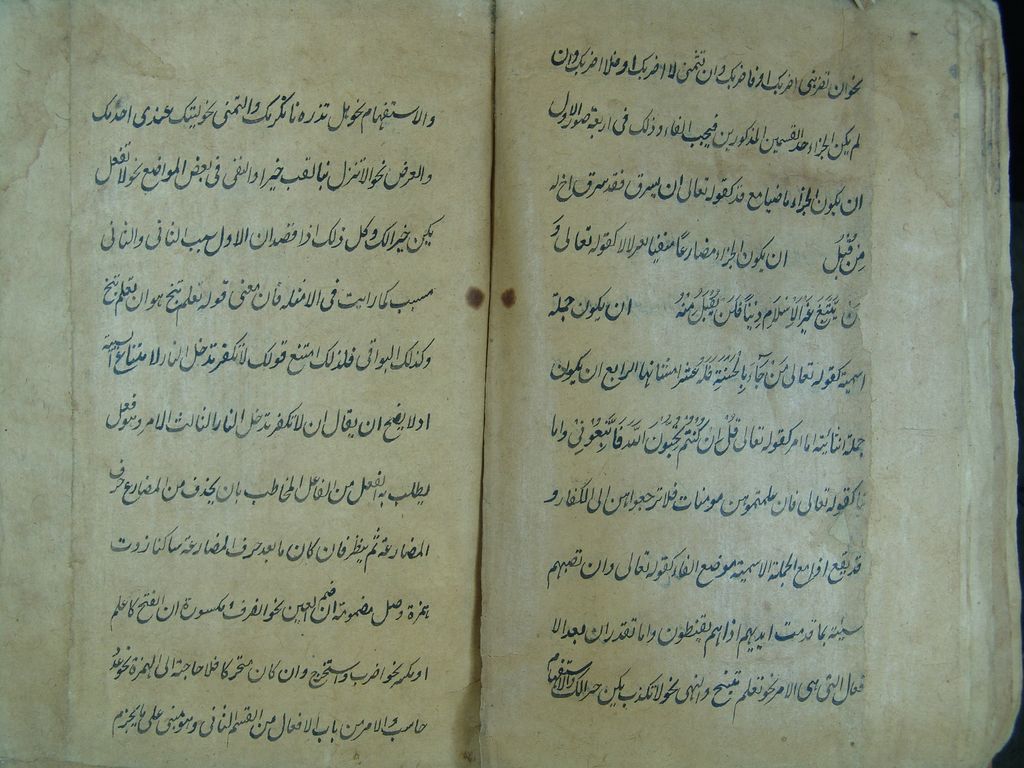 نحو ان تضربنی اضربک او فاضربک وان تشتمنی لا اضربک او فلا اضربک وان
لم یکن الجزاء احد القسمین المذکورین فیجب الفاء وذلک فی اربعة صور الاول
ان یکون الجزاء ماضیا مع قد کقوله تعالی ان یسرق فقد سرق اخ له
مِن قَبْلُ ان یکون الجزاء مضارعًا منفیا بغیر لا کقوله تعالی وَ
مَن یَبْتَغِ غَیْرَ الْاِسْلَامِ دِیناً فَلَن یُقْبَلَ مِنْهُ ان یکون جملة
اسمیة کقوله تعالی مَنْ جَآءَ بِالْحَسَنَةِ فَلَهُ عَشْرُ امثالها الرابع ان یکون
جملة انشائیة اما امر کقوله تعالی قُلْ اِنْ کُنْتُمْ تُحِبُّونَ اللّٰهَ فَاتَّبِعُونِی واما
کقوله تعالی فان علمتموهن مومنات فلا ترجعوهن الی الکفار و
قد یقع اذا مع الجملة الاسمیة موضع الفاء کقوله تعالی وان تصبهم
سیئة بما قدمت ایدیهم اذا هم یقنطون وانما تقدر ان بعد الا
فعال التی هی الامر نحو تعلم تنجح والنهی نحو لا تکذب یکن خیرا لک والاستفهام
والاستفهام نحو هل تزرنا نکرمک والتمنی نحو لیتک عندی اخدمک
والعرض نحو الا تنزل بنا تصب خیرا والنفی فی بعض المواضع نحو لا تفعل
یکن خیرا لک وکل ذلک اذا قصد ان الاول سبب الثانی والثانی
مسبب کما رایت فی الامثلة فان معنی قوله تعلم تنجح هو ان تتعلم تنجح
وکذلک البواقی فلذلک امتنع قولک لا تکفر تدخل النار لامتناع السببیة
اذ لا یصح ان یقال ان لا تکفر تدخل النار الثالث الامر وهو فعل
یطلب به الفعل من الفاعل المخاطب بان یحذف من المضارع حرف
المضارعة ثم ینظر فان کان ما بعد حرف المضارعة ساکنا زدت
همزة وصل مضمومة ان ضم العین نحو انصر ومکسورة ان انفتح کاعلم
او نکسر نحو اضرب واستخرج وان کان متحرکا فلا حاجة الی الهمزة نحو عد
حاسب والامر من باب الافعال من القسم الثانی وهو مبنی علی ما یجزم